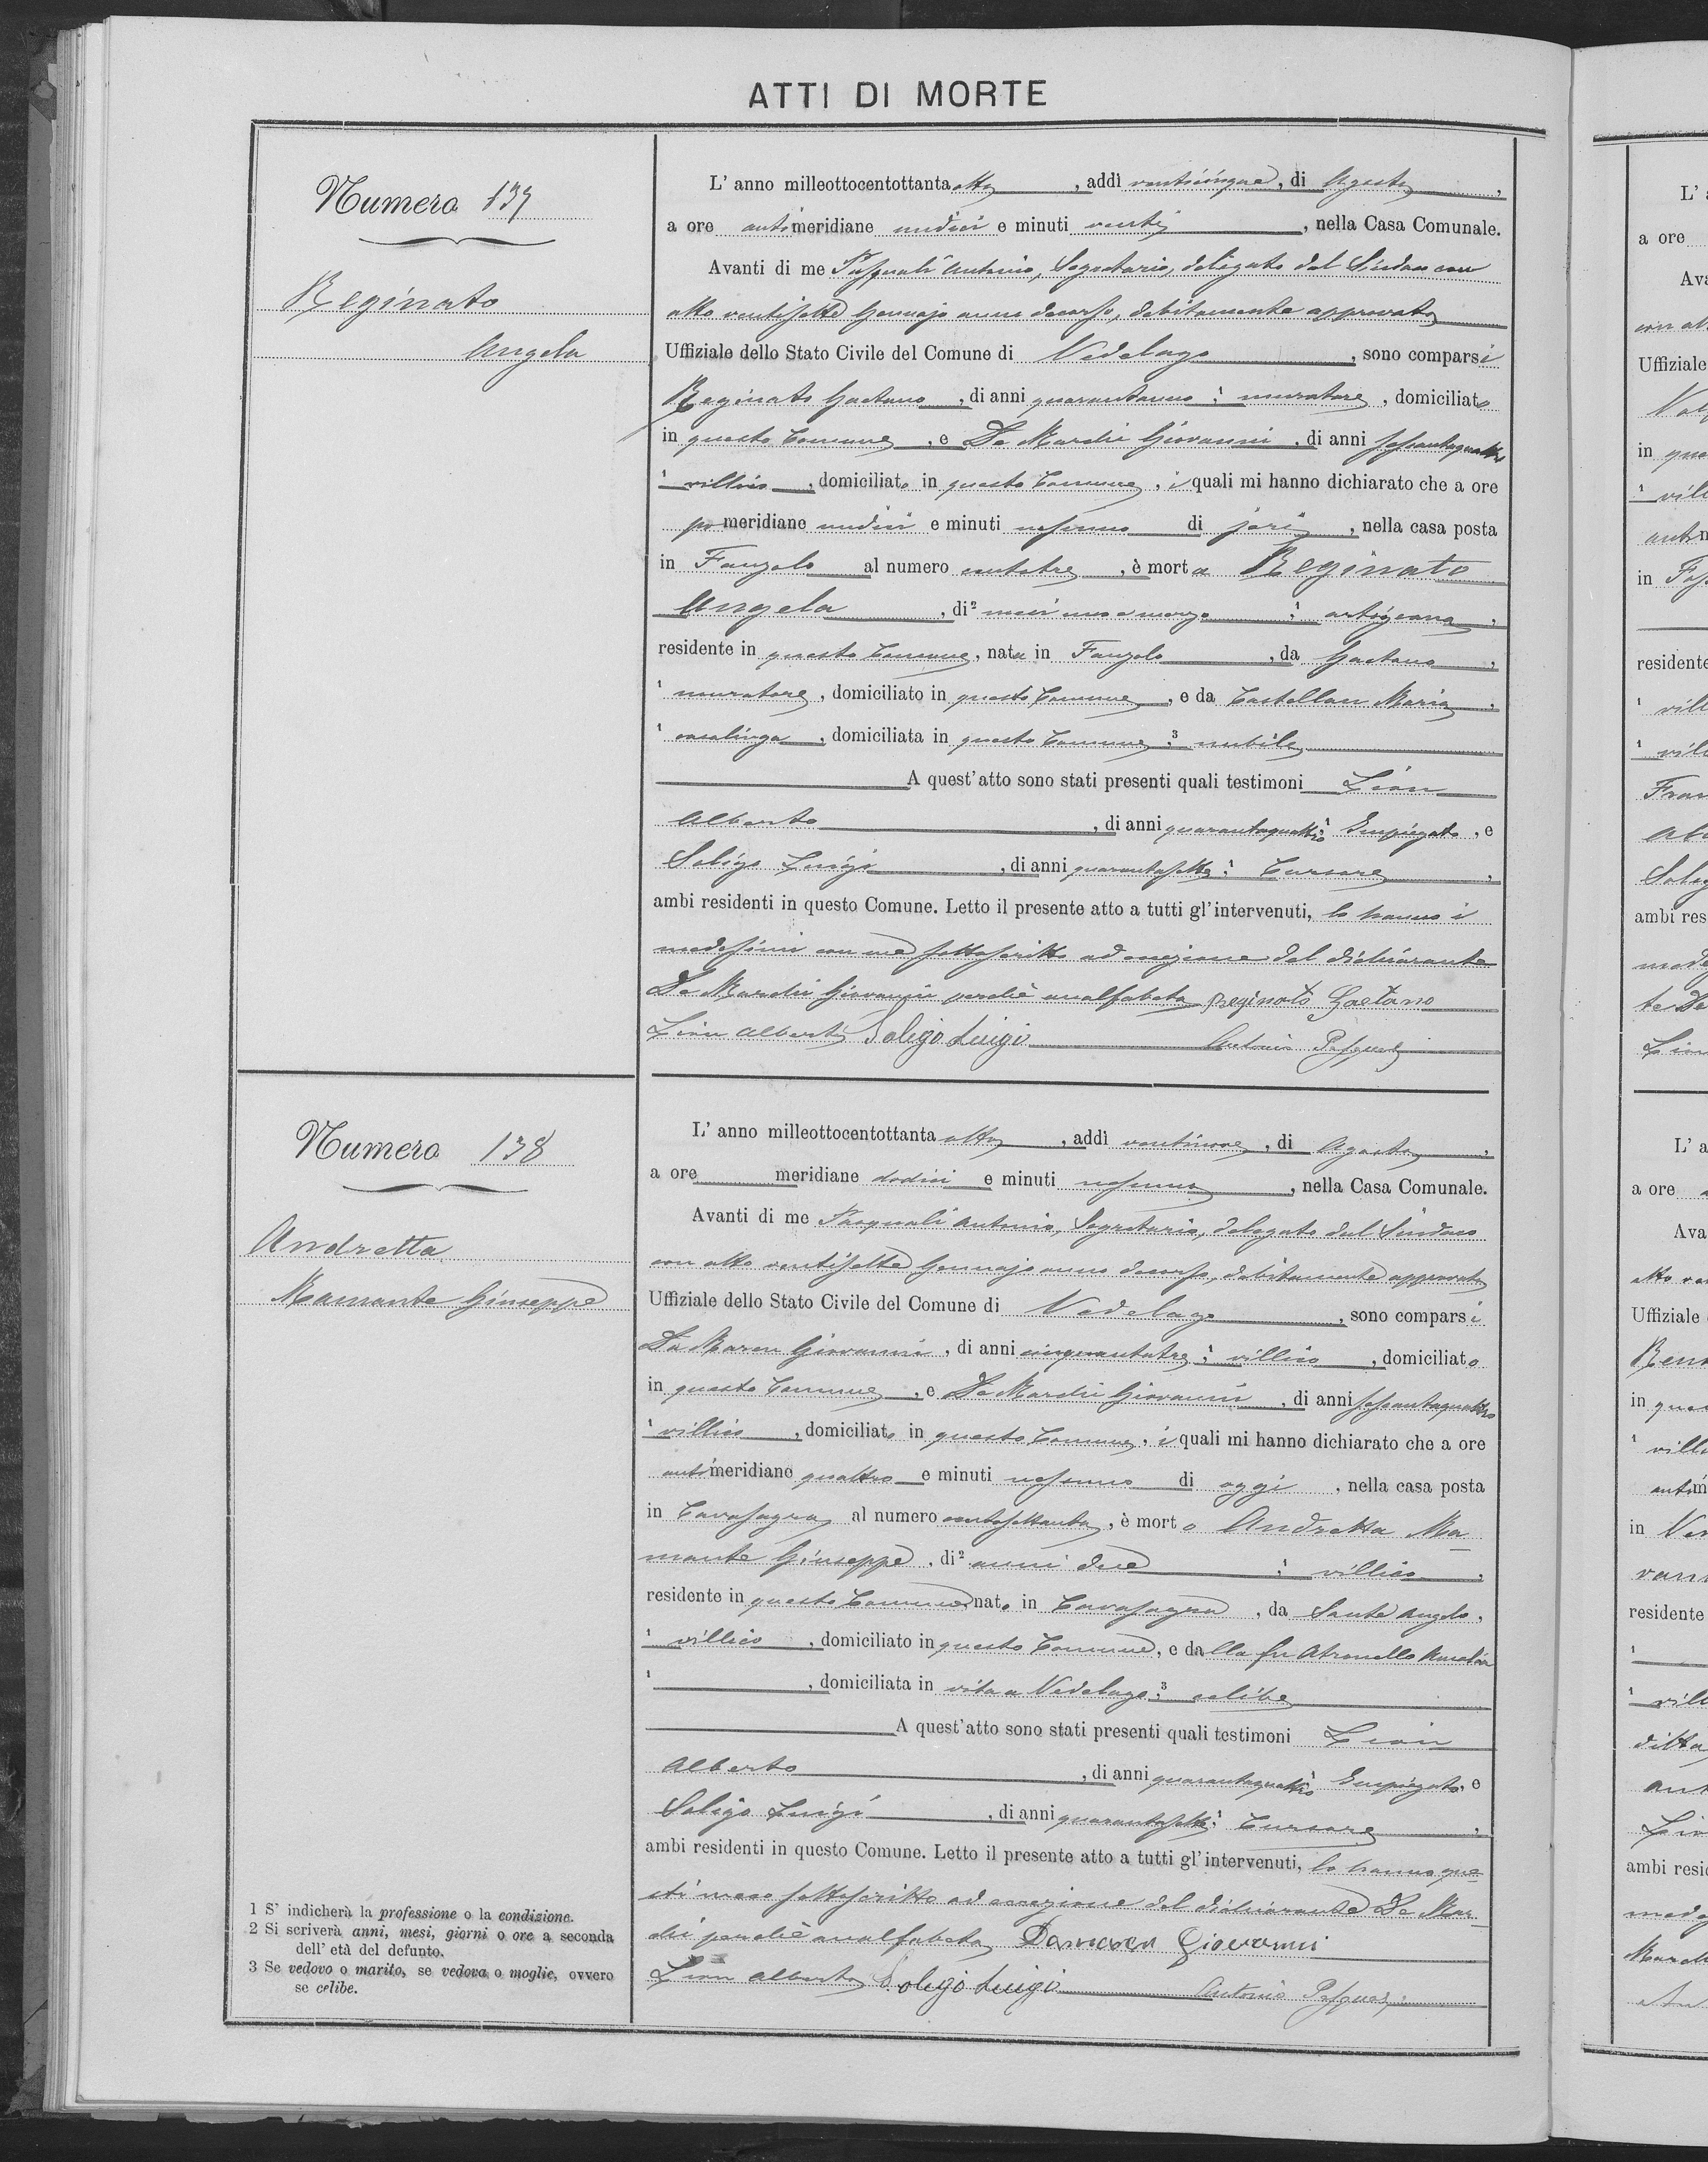 ATTI DI MORTE
Numero 137
Reginato
Angela
L' anno milleottocentottanta otto, addì venticinque, di Agosto,
a ore antimeridiane undici e minuti venti, nella Casa Comunale.
Avanti di me Pasquali Antonio, Segretario, delegato dal Sindaco con
atto ventisette Gennajo anno decorso, debitamente approvato
Uffiziale dello Stato Civile del Comune di Vedelago, sono comparsi
Reginato Gaetano, di anni quarantauno, 1 muratore, domiciliato
in questo Comune, e De Marchi Giovanni, di anni sessantaquattro
1 villico, domiciliato in questo Comune, i quali mi hanno dichiarato che a ore
pomeridiane undici e minuti nessuno di jeri, nella casa posta
in Fanzolo al numero centotre, è morta Reginato
Angela, di 2 mesi uno e mezzo, 1 artigiana,
residente in questo Comune, nata in Fanzolo, da Gaetano,
1 muratore, domiciliato in questo Comune, e da Castellan Maria,
1 casalinga, domiciliata in questo Comune, 3 nubile
A quest'atto sono stati presenti quali testimoni Lion
Alberto, di anni quarantaquattro, 1 Impiegato, e
Soligo Luigi, di anni quarantasette, 1 Cursore,
ambi residenti in questo Comune. Letto il presente atto a tutti gl'intervenuti, lo hanno i
medesimi con me sottoscritto ad eccezione del dichiarante
De Marchi Giovanni perchè analfabeta Reginato Gaetano
Lion Alberto Soligo Luigi Antonio Pasquali
Numero 138
Andretta
Mamante Giuseppe
L' anno milleottocentottanta otto, addì ventinove, di Agosto,
a ore meridiane dodici e minuti nessuno, nella Casa Comunale.
Avanti di me Pasquali Antonio, Segretario, delegato dal Sindaco
con atto ventisette Gennajo anno decorso, debitamente approvato
Uffiziale dello Stato Civile del Comune di Vedelago, sono comparsi
Da Maren Giovanni, di anni cinquantatre, 1 villico, domiciliato
in questo Comune, e De Marchi Giovanni, di anni sessantaquattro
1 villico, domiciliato in questo Comune, i quali mi hanno dichiarato che a ore
antimeridiane quattro e minuti nessuno di oggi, nella casa posta
in Cavasagra al numero centosettanta, è morto Andretta Ma
mante Giuseppe, di 2 anni due, 1 villico,
residente in questo Comune, nato in Cavasagra, da Sante Angelo,
1 villico, domiciliato in questo Comune, e dalla fu
1, domiciliata in vita a Vedelago, 3 celibe
A quest'atto sono stati presenti quali testimoni Lion
Alberto, di anni quarantaquattro, 1 Impiegato, e
Soligo Luigi, di anni quarantasette, 1 Cursore,
ambi residenti in questo Comune. Letto il presente atto a tutti gl'intervenuti, lo hanno que
sti meco sottoscritto ad eccezione del dichiarante De Mar
chi perchè analfabeta Giovanni
Lion Alberto Soligo Luigi Antonio Pasquali
1 S' indicherà la professione o la condizione.
2 Si scriverà anni, mesi, giorni o ore a seconda
dell' età del defunto.
3 Se vedovo o marito, se vedova o moglie, ovvero
se celibe.